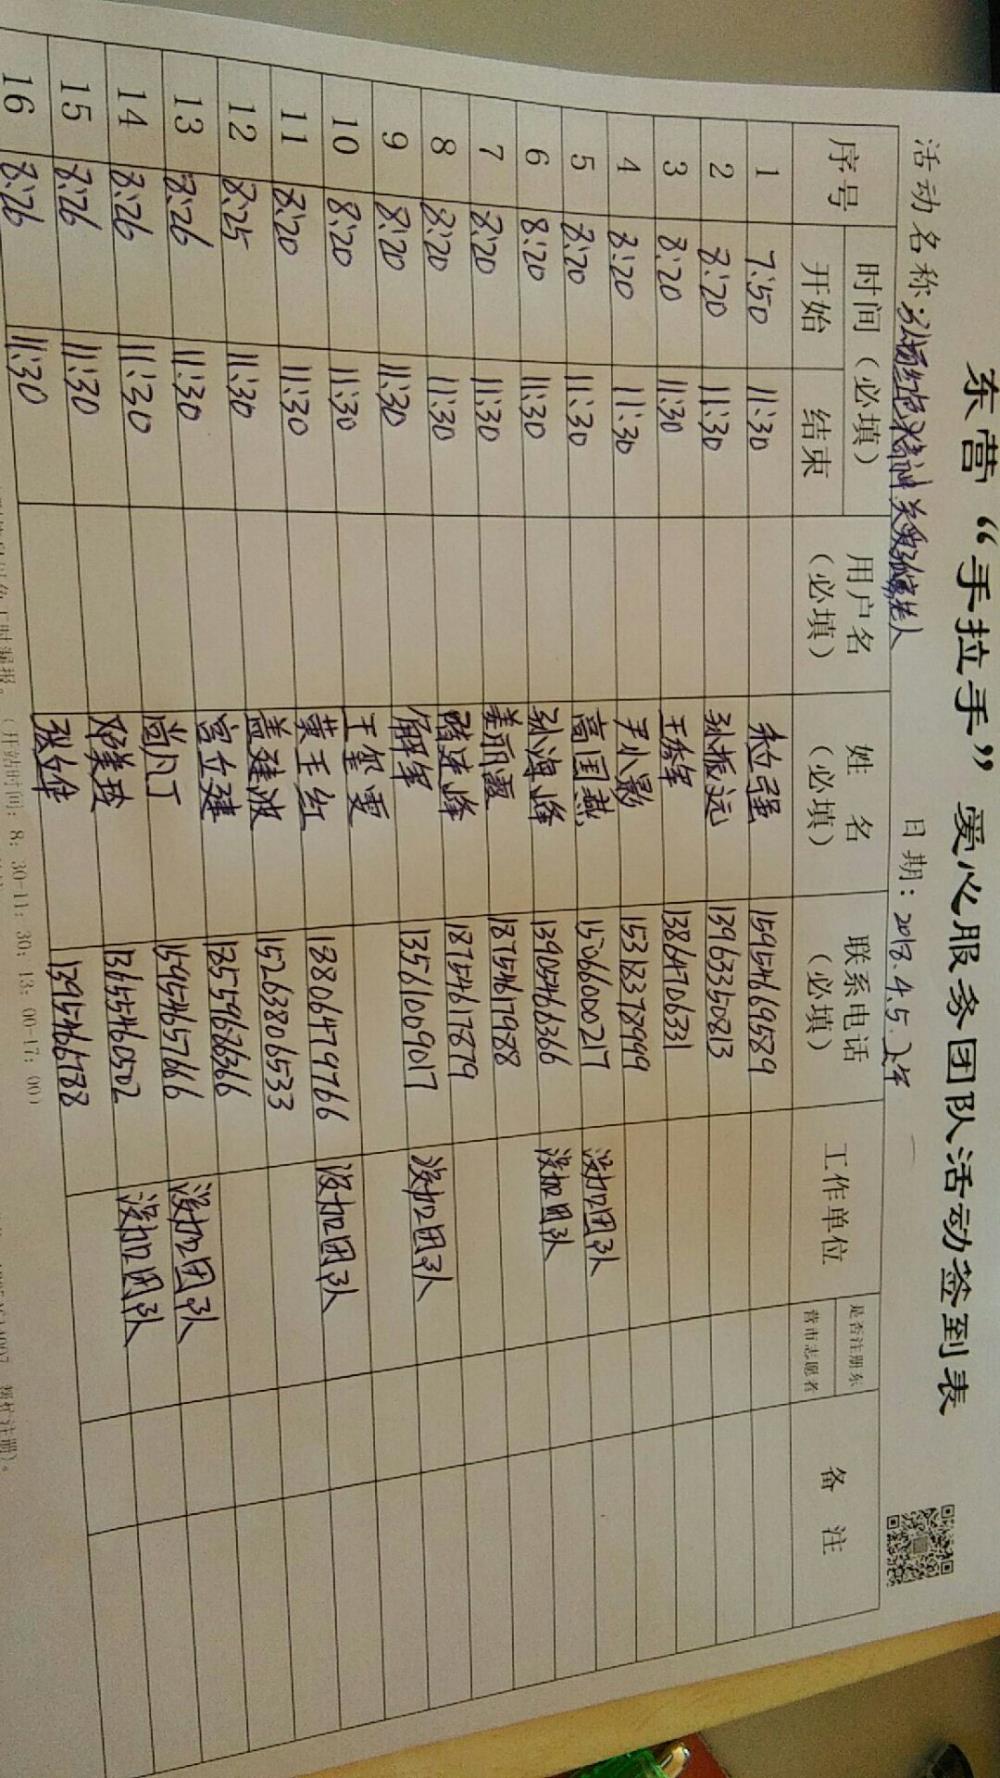 东营“手拉手”爱心服务团队活动签到表
活动名称:弘扬红色精神 关爱孤寡老人 日期:2018.4.5.上午
序号 时间(必填) 开始 结束 用户名(必填) 姓名(必填) 联系电话(必填) 工作单位 是否注册东营市志愿者 备注
1 7:50 11:30 15954669589
2 8:20 11:30 孙振远 13963350813
3 8:20 11:30 王俊军 13864706331
4 8:20 11:30 尹小影 15318378999
5 8:20 11:30 高国燕 15066000217 没加团队
6 8:20 11:30 孙海峰 13905466366 没加团队
7 8:20 11:30 姜丽霞 18754617988
8 8:20 11:30 踏进峰 18754617879
9 8:20 11:30 解军 13561009017 没加团队
10 8:20 11:30 王军
11 8:20 11:30 黄玉红 18806479766 没加团队
12 8:25 11:30 盖建波 15263806533
13 8:26 11:30 宫立建
14 8:26 11:30 尚小丁 15954657666 没加团队
15 8:26 11:30 邓美玲 13655460502 没加团队
16 8:26 11:30 13915466788
(开站时间:8:30-11:30;13:00-17:00)